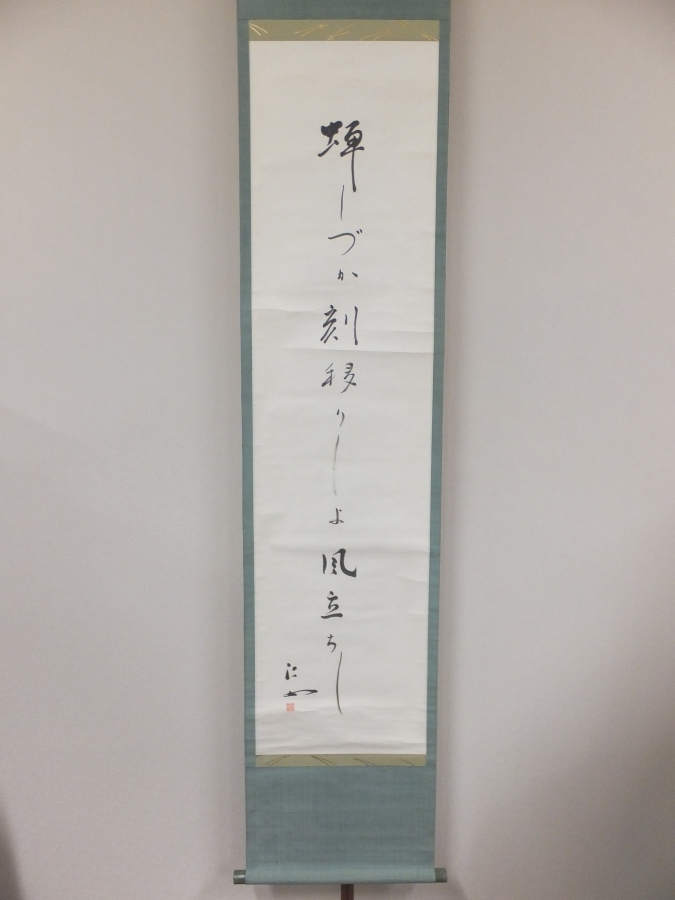 蝉しづか刻移りしよ風立ちし